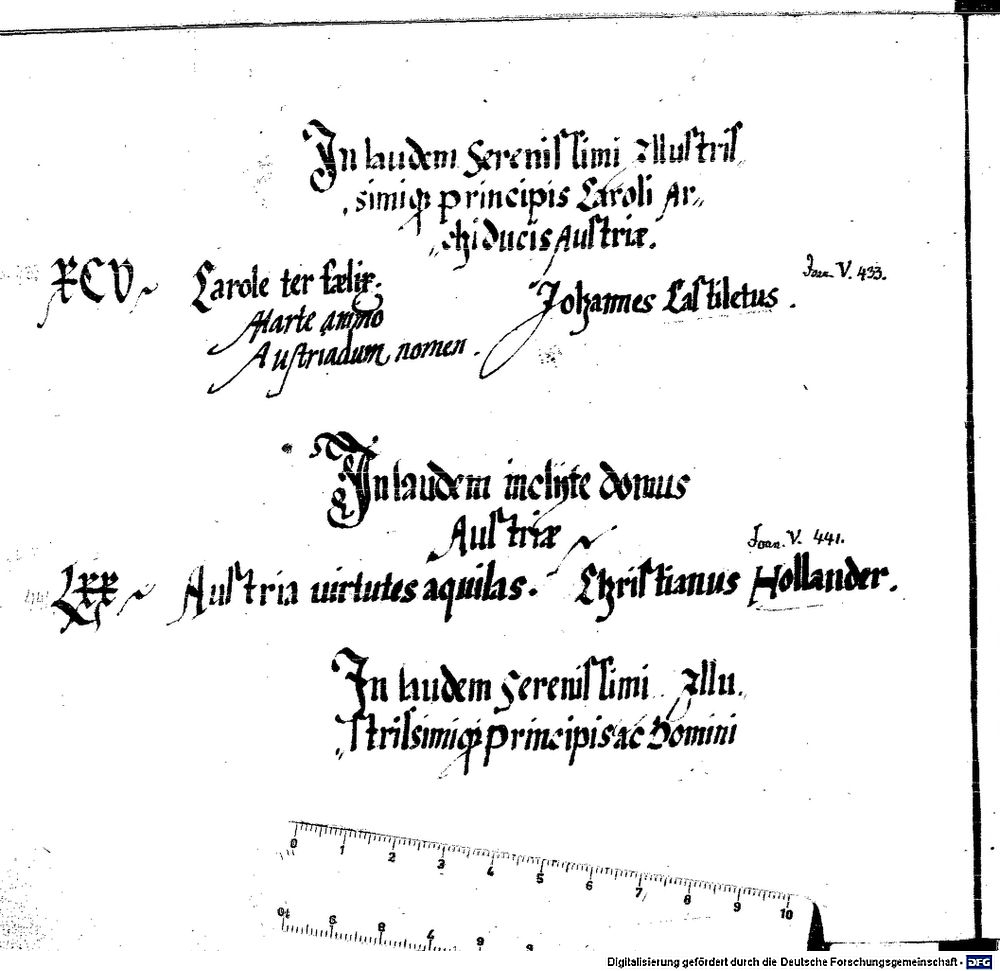 In laudem Serenissimi Illustris
simiq; principis Caroli Ar„
„chiducis Austriæ.
XCV
Carole ter fælix.
Marte animo
Austriadum nomen.
Johannes Castiletus.
Joan V. 433.
In laudem inclyte domus
Austriæ
LXX
Austria virtutes aquilas.
Christianus Hollander.
Joan. V. 441.
In laudem Serenissimi Illu„
„strissimiq; principis ac Domini
0 1 2 3 4 5 6 7 8 9 10
Digitalisierung gefördert durch die Deutsche Forschungsgemeinschaft - DFG